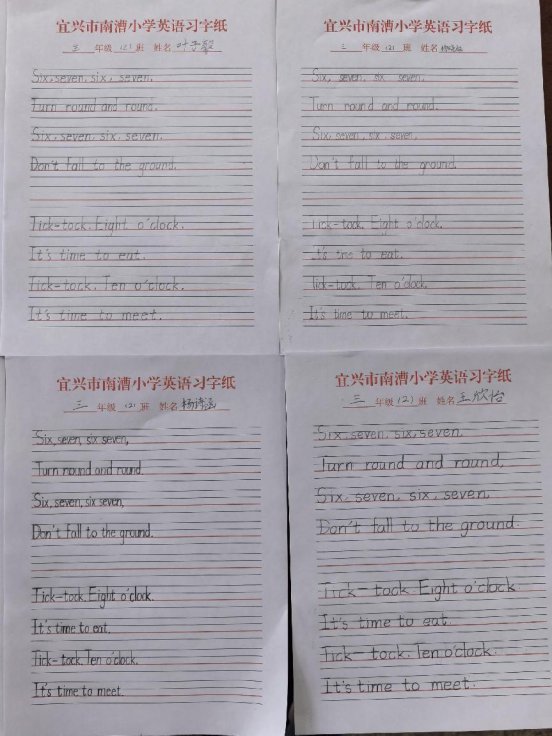 宜兴市南漕小学英语习字纸
三 年级 (2) 班 姓名 叶子毅
Six, seven, six, seven.
Turn round and round.
Six, seven, six, seven.
Don't fall to the ground.
Tick-tock. Eight o'clock.
It's time to eat.
Tick-tock. Ten o'clock.
It's time to meet.
宜兴市南漕小学英语习字纸
三 年级 (2) 班 姓名
Six, seven, six seven.
Turn round and round.
Six, seven, six, seven.
Don't fall to the ground.
Tick-tock. Eight o'clock.
It's time to eat.
Tick-tock. Ten o'clock.
It's time to meet.
宜兴市南漕小学英语习字纸
三 年级 (2) 班 姓名 杨诗涵
Six, seven, six seven,
Turn round and round.
Six, seven, six seven,
Don't fall to the ground.
Tick-tock. Eight o'clock.
It's time to eat.
Tick-tock. Ten o'clock.
It's time to meet.
宜兴市南漕小学英语习字纸
三 年级 (2) 班 姓名 王欣怡
Six, seven, six, seven.
Turn round and round.
Six, seven, six, seven.
Don't fall to the ground.
Tick-tock. Eight o'clock.
It's time to eat.
Tick-tock. Ten o'clock.
It's time to meet.